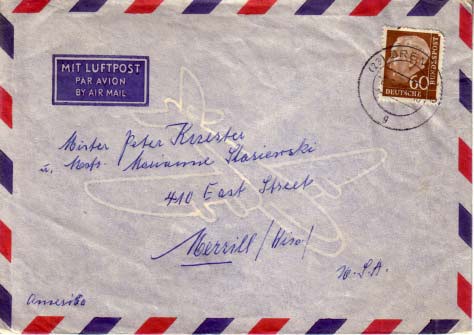 MIT LUFTPOST
PAR AVION
BY AIR MAIL
60
DEUTSCHE
BUNDESPOST
Mister Peter Krzester
u. Marianne Stasiewski
410 East Street
Merrill/Wisc/
U.S.A.
Amerika